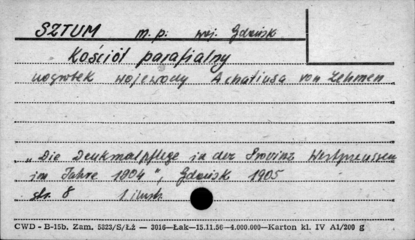 SZTUM m.p. woj. Gdańsk
Kościół parafialny
nagrobek wojewody Achatiusa von Zehmen
„Die Denkmalpflege in der Provinz Westpreussen
im Jahre 1904", Gdańsk 1905
str. 8 1 ilustr.
CWD - B-15b. Zam. 5823/S/Łż — 3016—Łak—15.11.56—4.000.000—Karton kl. IV A1/200 g